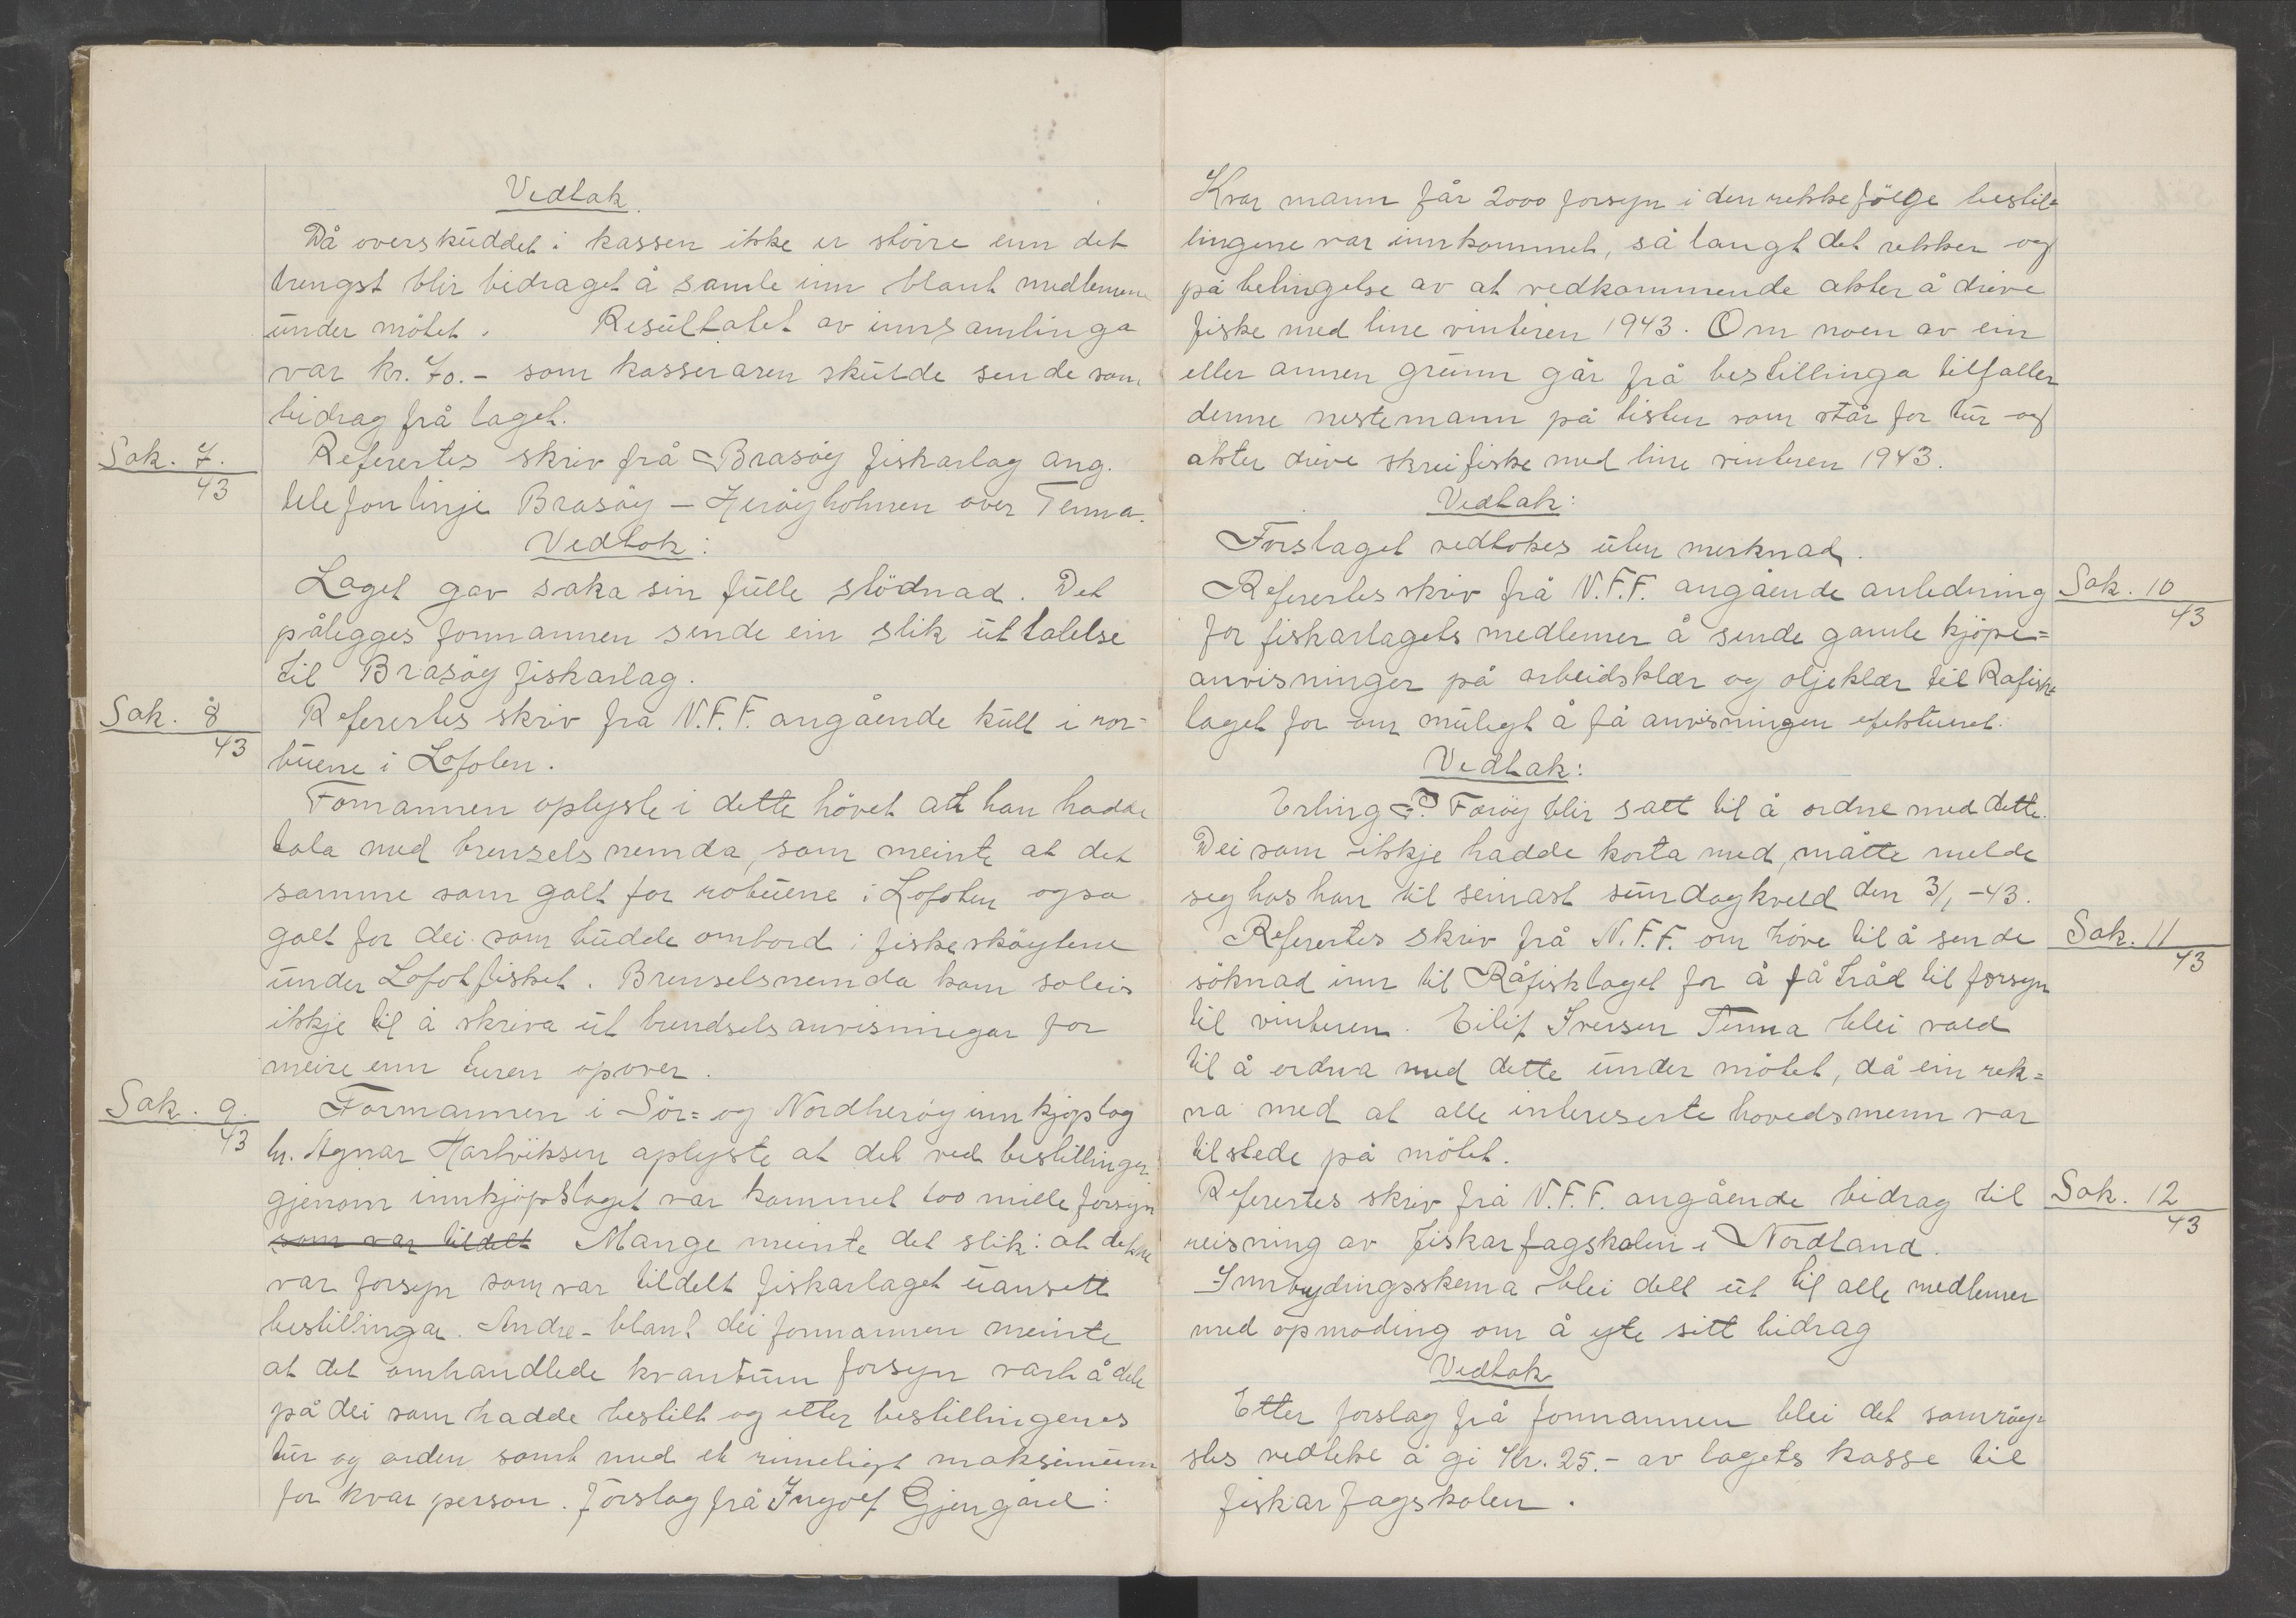 Vedtak
Då overskuddet i kassen ikke er större enn det
trengst blir bidraget å samle inn blant medlemene
under mötet. Resultatet av innsamlinga
var kr. 70.- som kasseraren skulde sende som
bidrag frå laget.
Sak. 7.
43
Referertes skriv frå Brasöy fiskarlag ang.
telefonlinje Brasöy – Heröyholmen over Tenna.
Vedtak:
Laget gav saka sin fulle stödnad. Det
pålegges formannen sende ein slik uttalelse
til Brasöy fiskarlag.
Sak. 8
43
Referertes skriv fra N.F.F. angående kull i ror=
buene i Lofoten.
Fomannen oplyste i dette hövet att han hadde
tala med brenselsnemda, som meinte at det
samme som galt for robuene i Lofoten ogsa
galt for dei som budde ombord i fiskesköytene
under Lofotfisket. Brenselsnemda kom soleis
ikkje til å skriva ut brendselsanvisningar for
meire enn turen opover.
Sak. 9.
43
Formannen i Sör= og Nordheröy innkjöpslag
hr. Agnar Hartviksen oplyste at det ved bestillinger
gjenom innkjöpslaget var kommet 100 mille forsyn
som var tildelt Mange meinte det slik: at dette
var forsyn som var tildelt fiskarlaget uansett
bestillingar. Andre - blant dei formannen meinte
at det omhandlede kvantum forsyn varh å dele
på dei som hadde bestilt og etter bestillingenes
tur og orden samt med et rimeligt maksimum
for kvar person. Forslag frå Ingolf Gjengård:
Kvar mann får 2000 forsyn i den rekkefölge bestil=
lingene var innkommet, så langt det rekker og
på betingelse av at vedkommende akter å drive
fiske med line vinteren 1943. Om noen av ein
eller annen grunn går frå bestillinga tilfaller
denne nestemann på listen som står for tur og
akter drive skreifiske med line vinteren 1943.
Vedtak:
Forslaget vedtokes uten merknad.
Sak. 10
43
Referertes skriv frå N.F.F. angående anledning
for fiskarlagets medlemer å sende gamle kjöpe=
anvisninger på arbeidsklær og oljeklær til Rafiske
laget for om muligt å få anvisningen efektueret.
Vedtak:
Erling P. Færöy blir satt til å ordne med dette.
Dei som ikkje hadde korta med, måtte melde
seg hos han til seinast sundagkveld den 3/1 -43.
Sak. 11
43
Referertes skriv frå N.F.F. om höve til å sende
söknad inn til Råfisklaget for å få tråd til forsyn
til vinteren. Eilif Iversen Tenna blei vald
til å ordna med dette under mötet, då ein rek=
na med at alle intereserte hovedsmenn var
tilstede på mötet.
Sak. 12
43
Referertes skriv frå N.F.F. angående bidrag til
reisning av fiskarfagskolen i Nordland.
Innbydingsskema blei delt ut til alle medlemer
med opmoding om å yte sitt bidrag
Vedtak
Etter forslag frå formannen blei det samröy=
stes vedteke å gi Kr. 25.- av lagets kasse til
fiskarfagskolen.